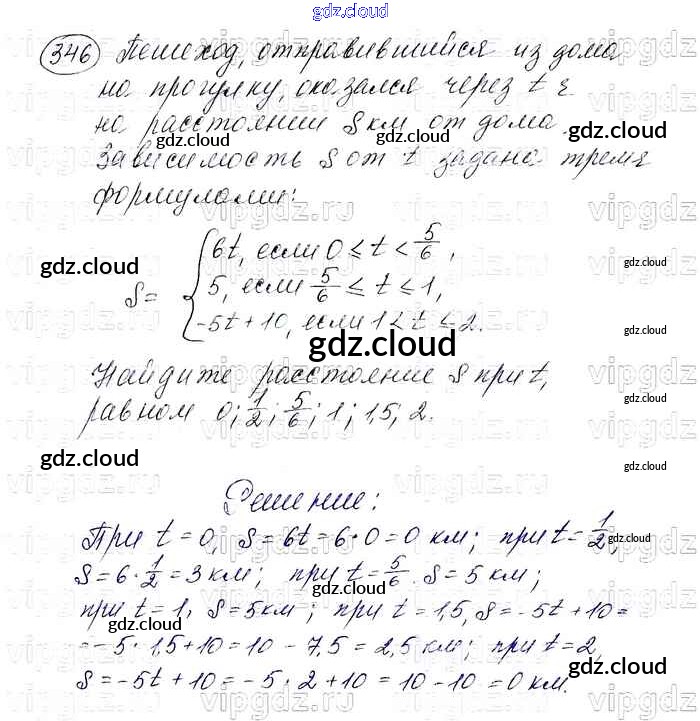 gdz.cloud
346 Пешеход, отправившийся из дома
на прогулку, оказался через t ч
на расстоянии S км от дома.
gdz.cloud
Зависимость S от t задана тремя
формулами:
S = { 6t, если 0 ≤ t < 5/6,
5, если 5/6 ≤ t ≤ 1,
-5t + 10, если 1 < t ≤ 2.
gdz.cloud
gdz.cloud
gdz.cloud
Найдите расстояние S при t,
равном 0; 1/2; 5/6; 1; 1,5; 2.
gdz.cloud
gdz.cloud
gdz.cloud
Решение:
При t = 0, S = 6t = 6·0 = 0 км; при t = 1/2,
gdz.cloud
S = 6·1/2 = 3 км; при t = 5/6 S = 5 км;
gdz.cloud
при t = 1, S = 5км; при t = 1,5, S = -5t + 10 =
gdz.cloud
= -5·1,5 + 10 = 10 - 7,5 = 2,5 км; при t = 2,
gdz.cloud
S = -5t + 10 = -5·2 + 10 = 10 - 10 = 0 км.
vipgdz.ru